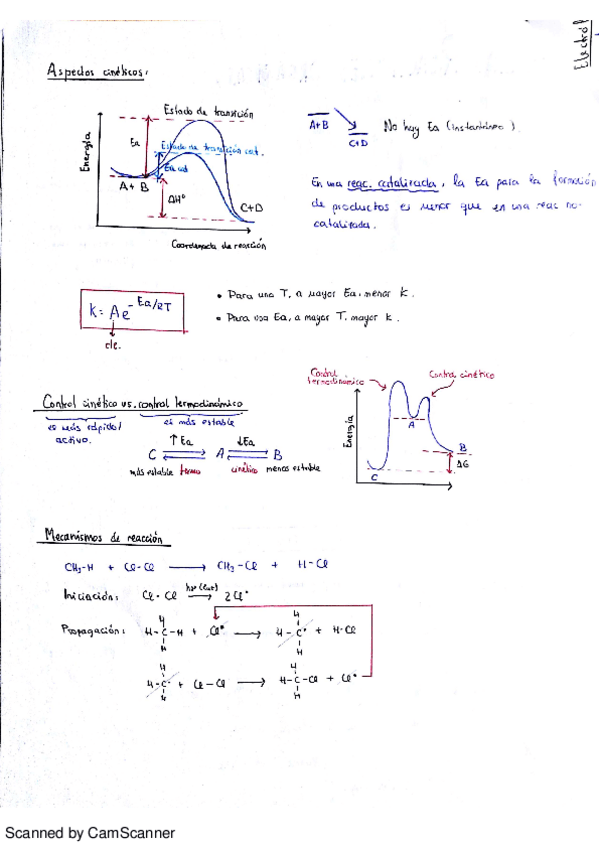 Electrof
Aspectos cinéticos:
Energía
Estado de transición
Ea
Estado de transición cat.
Ea cat
A + B
ΔH°
C+D
Coordenada de reacción
A+B
C+D
No hay Ea (instantáneo).
En una reac. catalizada, la Ea para la formación
de productos es menor que en una reac no-
catalizada.
K = Ae^-Ea/RT
cte.
• Para una T, a mayor Ea, menor K.
• Para una Ea, a mayor T, mayor K.
Control cinético vs. control termodinámico
es más rápido/
activo.
es más estable
↑Ea ↓Ea
C ⇌ A ⇌ B
más estable termo cinético menos estable
Control
termodinámico
Control cinético
Energía
A
B
ΔG
C
Mecanismos de reacción
CH3-H + Cl-Cl ⟶ CH3-Cl + H-Cl
Iniciación: Cl-Cl hν (luz) ⟶ 2Cl•
Propagación:
H
H-C-H + Cl• ⟶ H-C• + H-Cl
H
H
H-C• + Cl-Cl ⟶ H-C-Cl + Cl•
H
Scanned by CamScanner